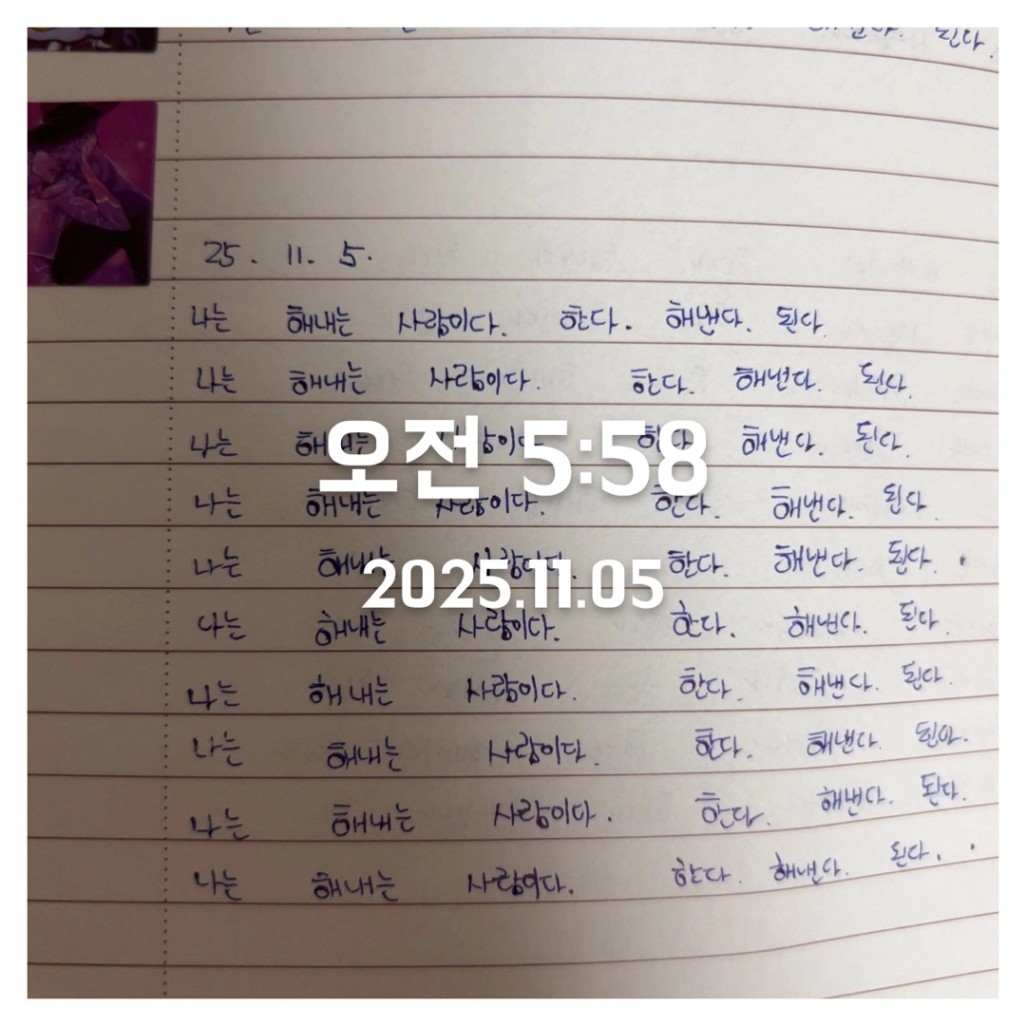 된다.
25. 11. 5.
나는 해내는 사람이다. 한다. 해낸다. 된다.
나는 해내는 사람이다. 한다. 해낸다. 된다.
나는 해내는 사람이다. 한다. 해낸다. 된다.
오전 5:58
나는 해내는 사람이다. 한다. 해낸다. 된다.
나는 해내는 사람이다. 한다. 해낸다. 된다.
2025.11.05
나는 해내는 사람이다. 한다. 해낸다. 된다.
나는 해내는 사람이다. 한다. 해낸다. 된다.
나는 해내는 사람이다. 한다. 해낸다. 된다.
나는 해내는 사람이다. 한다. 해낸다. 된다.
나는 해내는 사람이다. 한다. 해낸다. 된다.